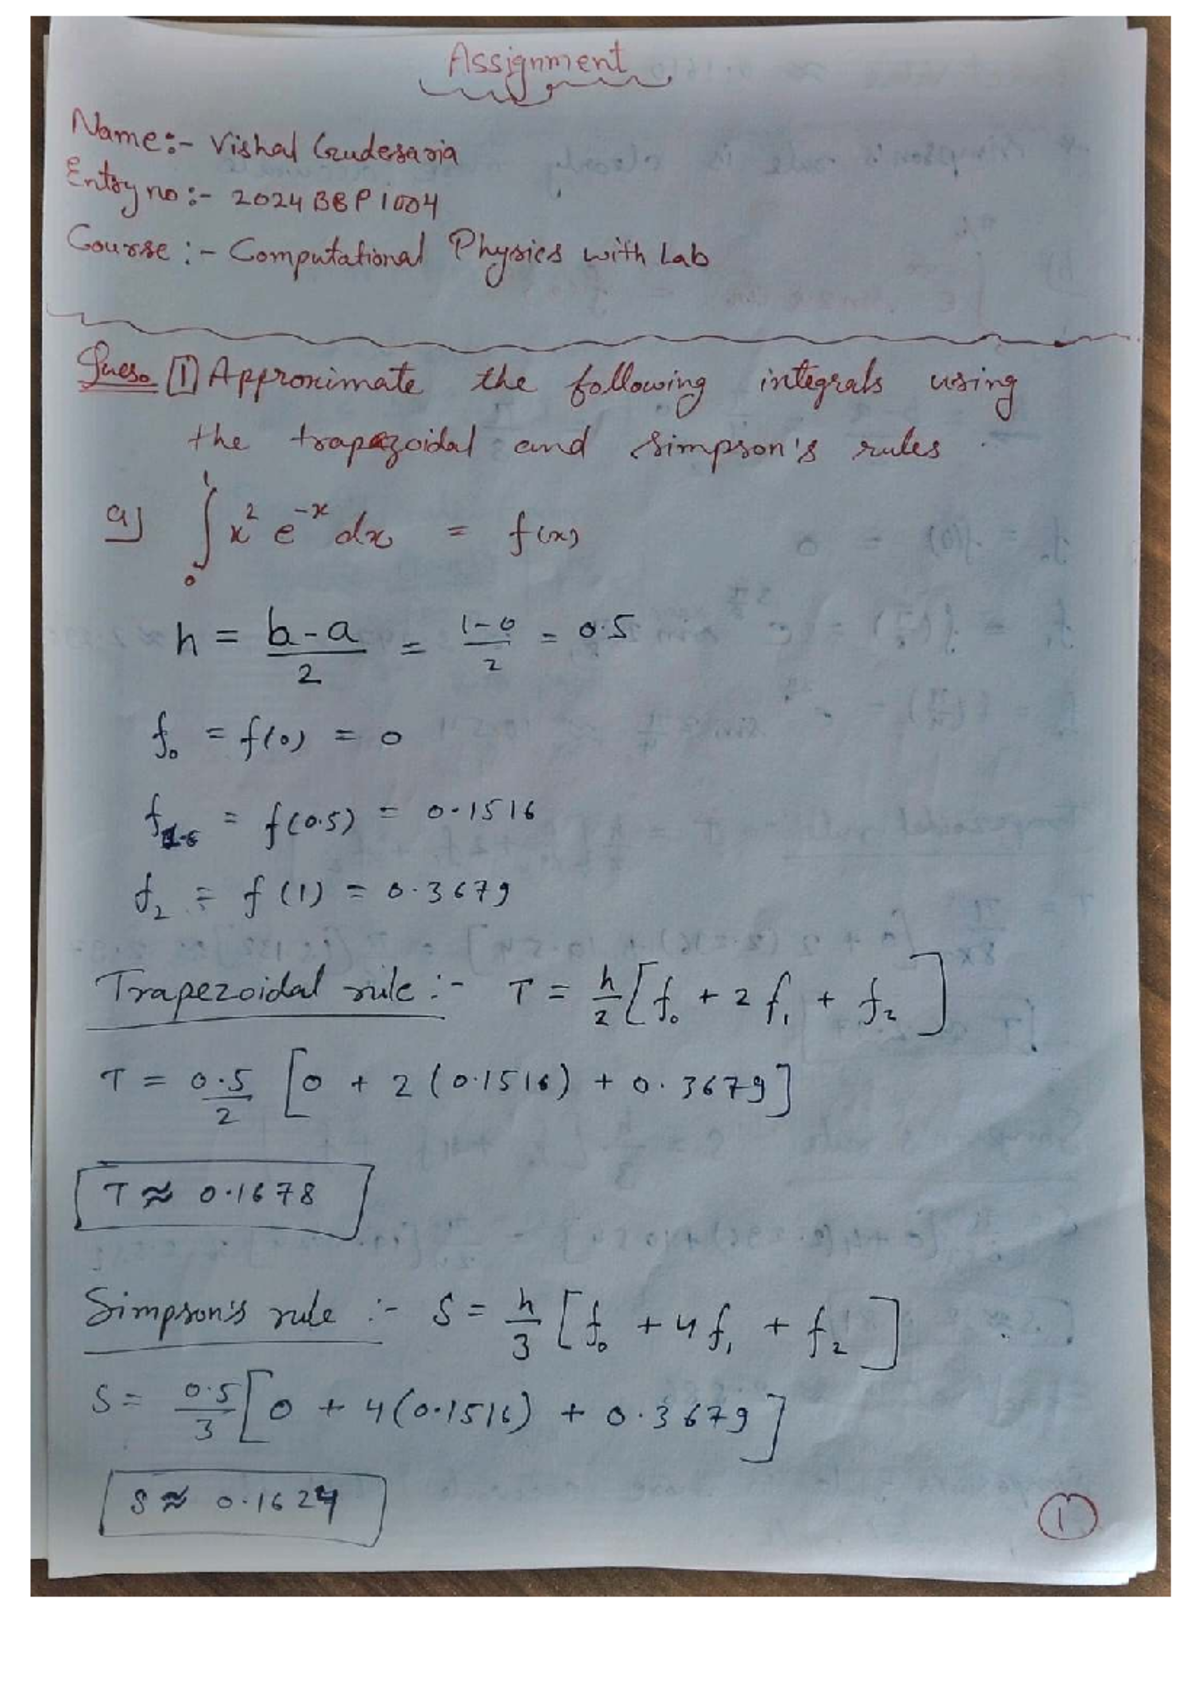 Assignment
Name:- Vishal Gudesaria
Entry no:- 2024BBPI004
Course:- Computational Physics with Lab
Ques. [1] Approximate the following integrals using
the trapezoidal and Simpson's rules.
a) ∫₀¹ x² e^-x dx = f(x)
h = b-a/2 = 1-0/2 = 0.5
f₀ = f(0) = 0
f = f(0.5) = 0.1516
f₂ = f(1) = 0.3679
Trapezoidal rule:- T = h/2 [f₀ + 2f₁ + f₂]
T = 0.5/2 [0 + 2(0.1516) + 0.3679]
T ≈ 0.1678
Simpson's rule :- S = h/3 [f₀ + 4f₁ + f₂]
S = 0.5/3 [0 + 4(0.1516) + 0.3679]
S ≈ 0.1624
1